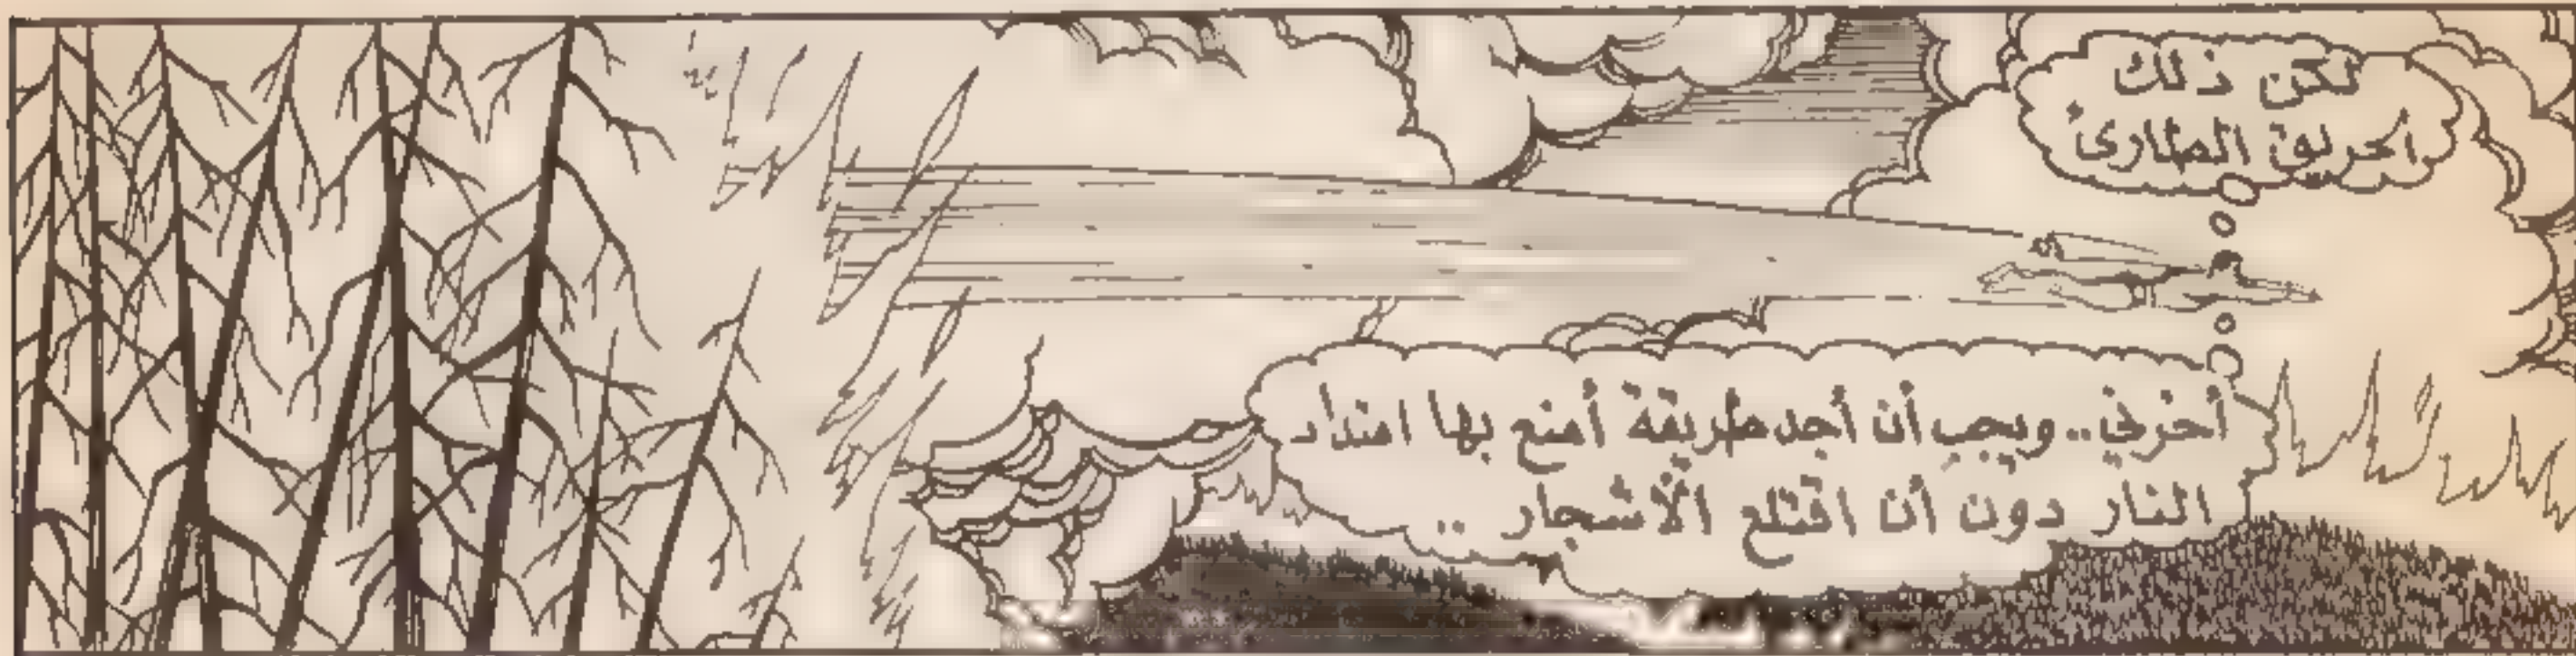 لكن ذلك
الحريق الطارئ
أخرني.. ويجب أن أجد طريقة أمنع بها امتداد
النار دون أن اقتلع الأشجار ..